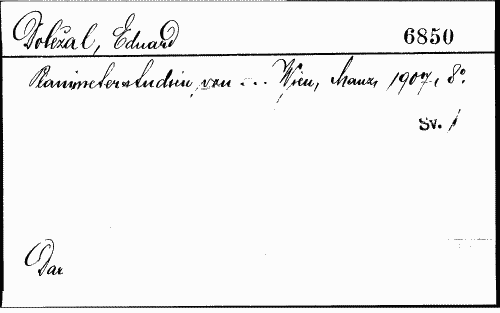 Doležal, Eduard 6850
Planimeterstudien, von ... Wien, Manz, 1907, 8°
Sv. 1
Dar